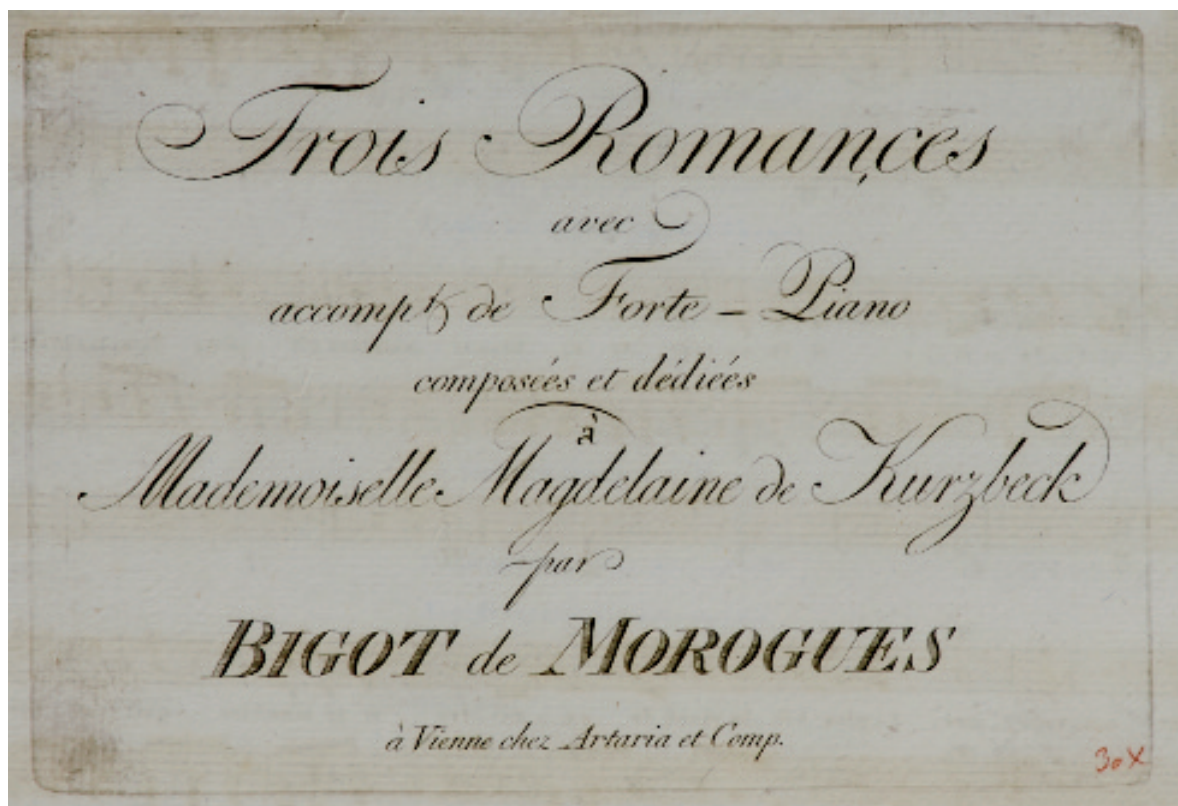 Trois Romançes
avec
accompt de Forte-Piano
composées et dédiées
à
Mademoiselle Magdelaine de Kurzbeck
par
BIGOT de MOROGUES
à Vienne chez Artaria et Comp.
30X